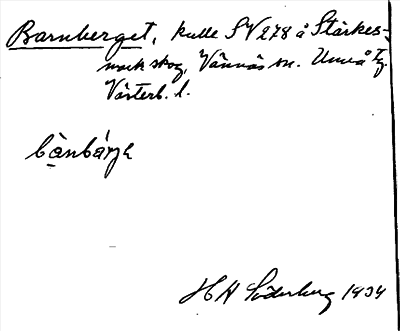 Barnberget, kulle SV 278 å Stärkes-
mark skog, Vännäs sn. Umeå tg.
Västerb. l.
bànbárjɛ
H A Söderberg 1934